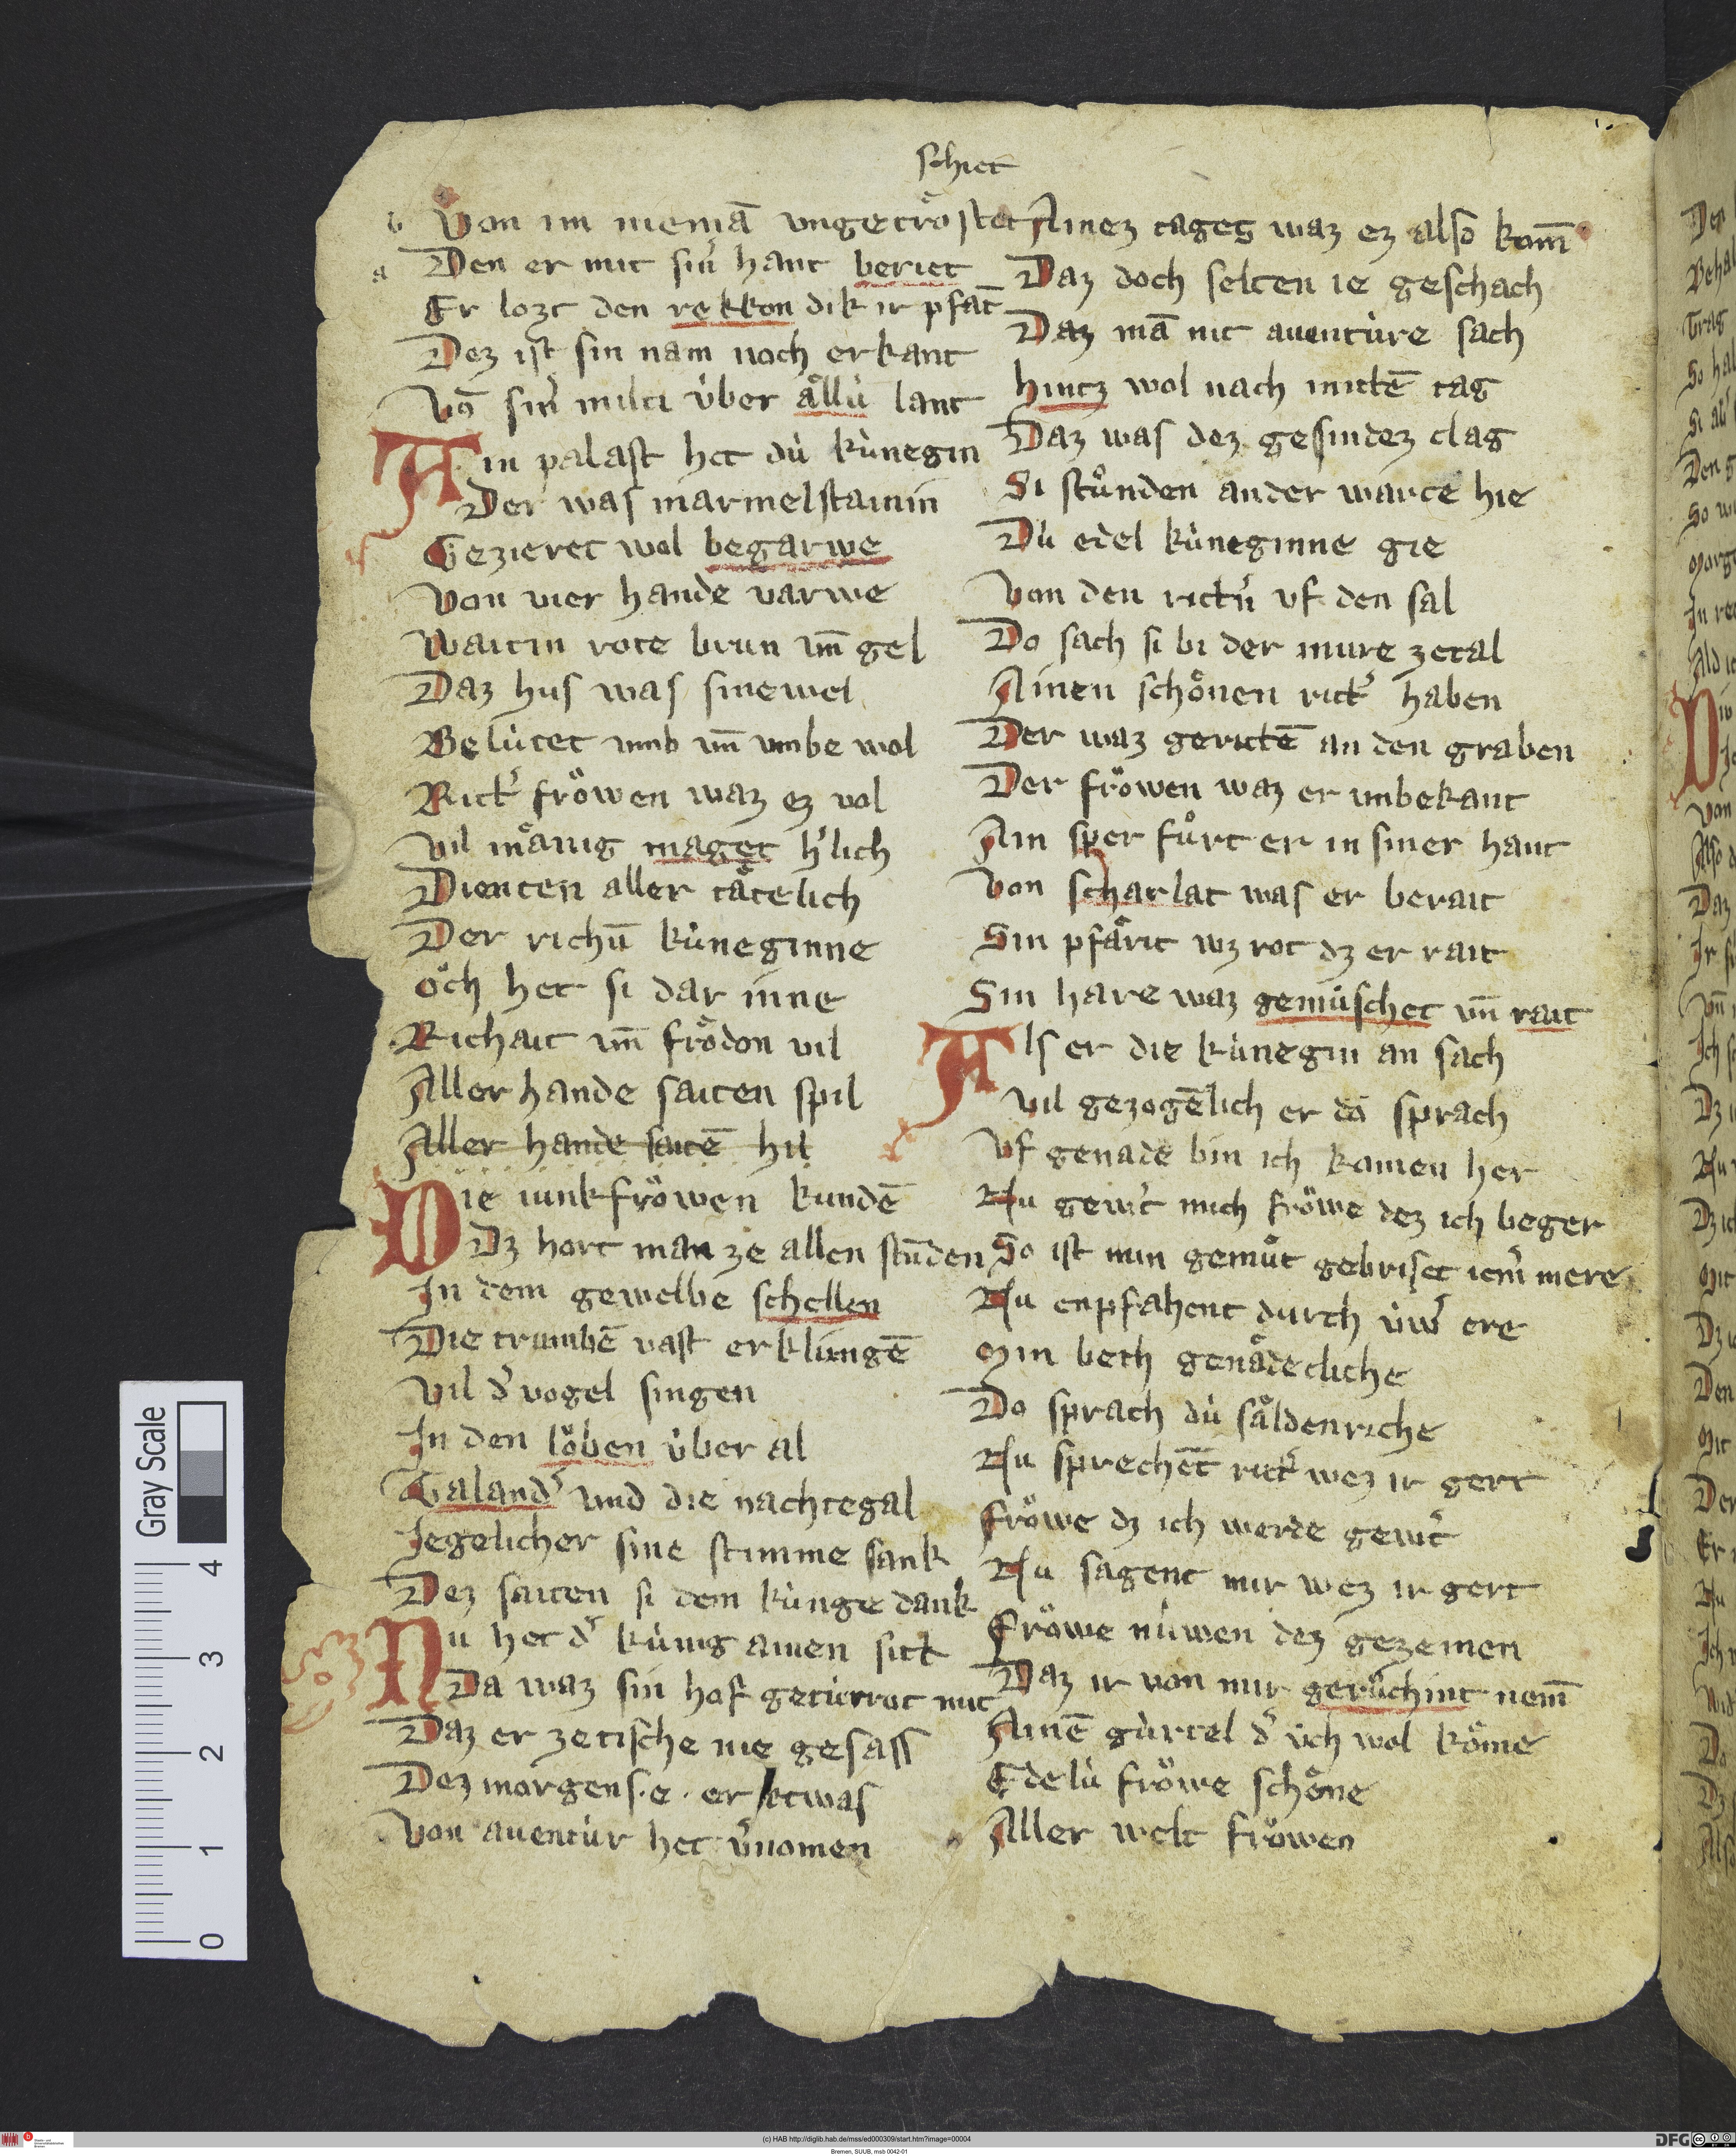 schiet
b Von im niemā vngetrȯ̈stet
a Den er mit sin̾ hant beriet
Er lozt den rekkon dik ir pfāt
Dez ist sin nam noch erkant
Vō sin̾ milti u̇ber ällu̇ lant
Ain palast het du̇ ku̇negin
Der was marmelstainin
Gezieret wol begarwe
Von vier hande varwe
Waitin rote brun vn̄ gel
Daz hus was sinewel
Belu̇tet vmb vn̄ vmbe wol
Rict̾ fröwen waz ez vol
Vil mänig maget h̾lich
Dienten aller tätelich
Der richū ku̇neginne
öch het si dar inne
Richait vn̄ frödon vil
Aller hande saiten spil
Aller hande saitē hil
Die iunkfröwen kundē
Dz hort man ze allen stūden
In dem gewelbe schellen
Die trumbē vast erklingē
Vil d̾ vogel singen
In den löben u̇ber al
Galand̾ vnd die nachtegal
Iegelicher sine stimme sank
Dez saiten si dem ku̇nge dank
Nu het d̾ ku̇nig ainen sitt
Da waz sin hof getu̇rrot mit
Daz er ze tische nie gesass
Dez morgens · e · er etwas
Von auentu̇r het v̾nomen
Ainez tages waz ez also kom̄
Daz doch selten ie geschach
Daz mā nit auentu̇re sach
hintz wol nach mittē tag
Daz was dez gesindez clag
Si stu̇nden ander warte hie
Du̇ edel ku̇neginne gie
Von den rictn̾ vf den sal
Do sach si bi der mure zetal
Ainen schönen rict̾ haben
Der waz gerictē an den graben
Der fröwen waz er vnbekant
Ain sper fůrt er in siner hant
Von scharlat was er berait
Sin pfärit wz rot dz er rait
Sin hare waz gemu̇schet vn̄ rait
Als er die ku̇negin an sach
Vil gezogēlich er do sprach
Vf genade bin ich komen her
Nu gew̾t mich fröwe dez ich beger
So ist min gemůt gebriset iem̾ mere
Nu enpfahent durch u̇w̾ ere
Min beth genädecliche
Do sprach du̇ säldenriche
Nu sprechēt rict̾ wez ir gert
Fröwe dz ich werde gew̾t
Nu sagent mir wez ir gert
Fröwe nu̇wen dez gezemen
Daz ir von mir geru̇chint nem̄
Ainē gu̇rtel d̾ u̇ch wol köme
Edelu̇ fröwe schöne
Aller welt fröwen
Gray Scale
4
3
2
1
0
(c) HAB http://diglib.hab.de/mss/ed000309/start.htm?image=00004
Bremen, SUUB, msb 0042-01
DFG